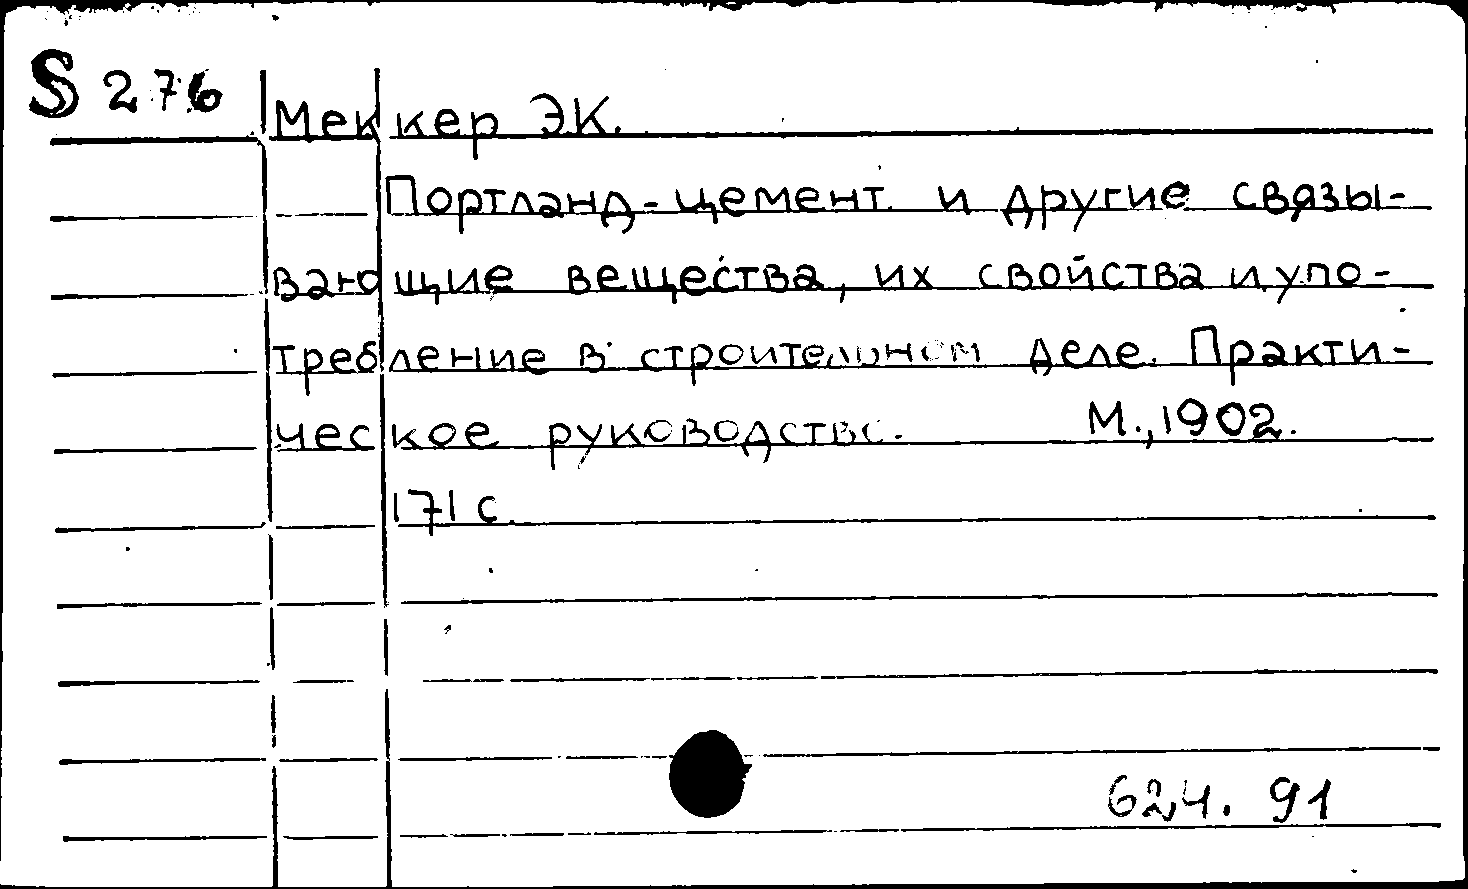 S 276
Меккер ЭК.
Портланд-цемент и другие связы-
вающие вещества, их свойства и упо-
требление в строительном деле. Практи-
ческое руководство. М., 1902.
171 с.
624.91